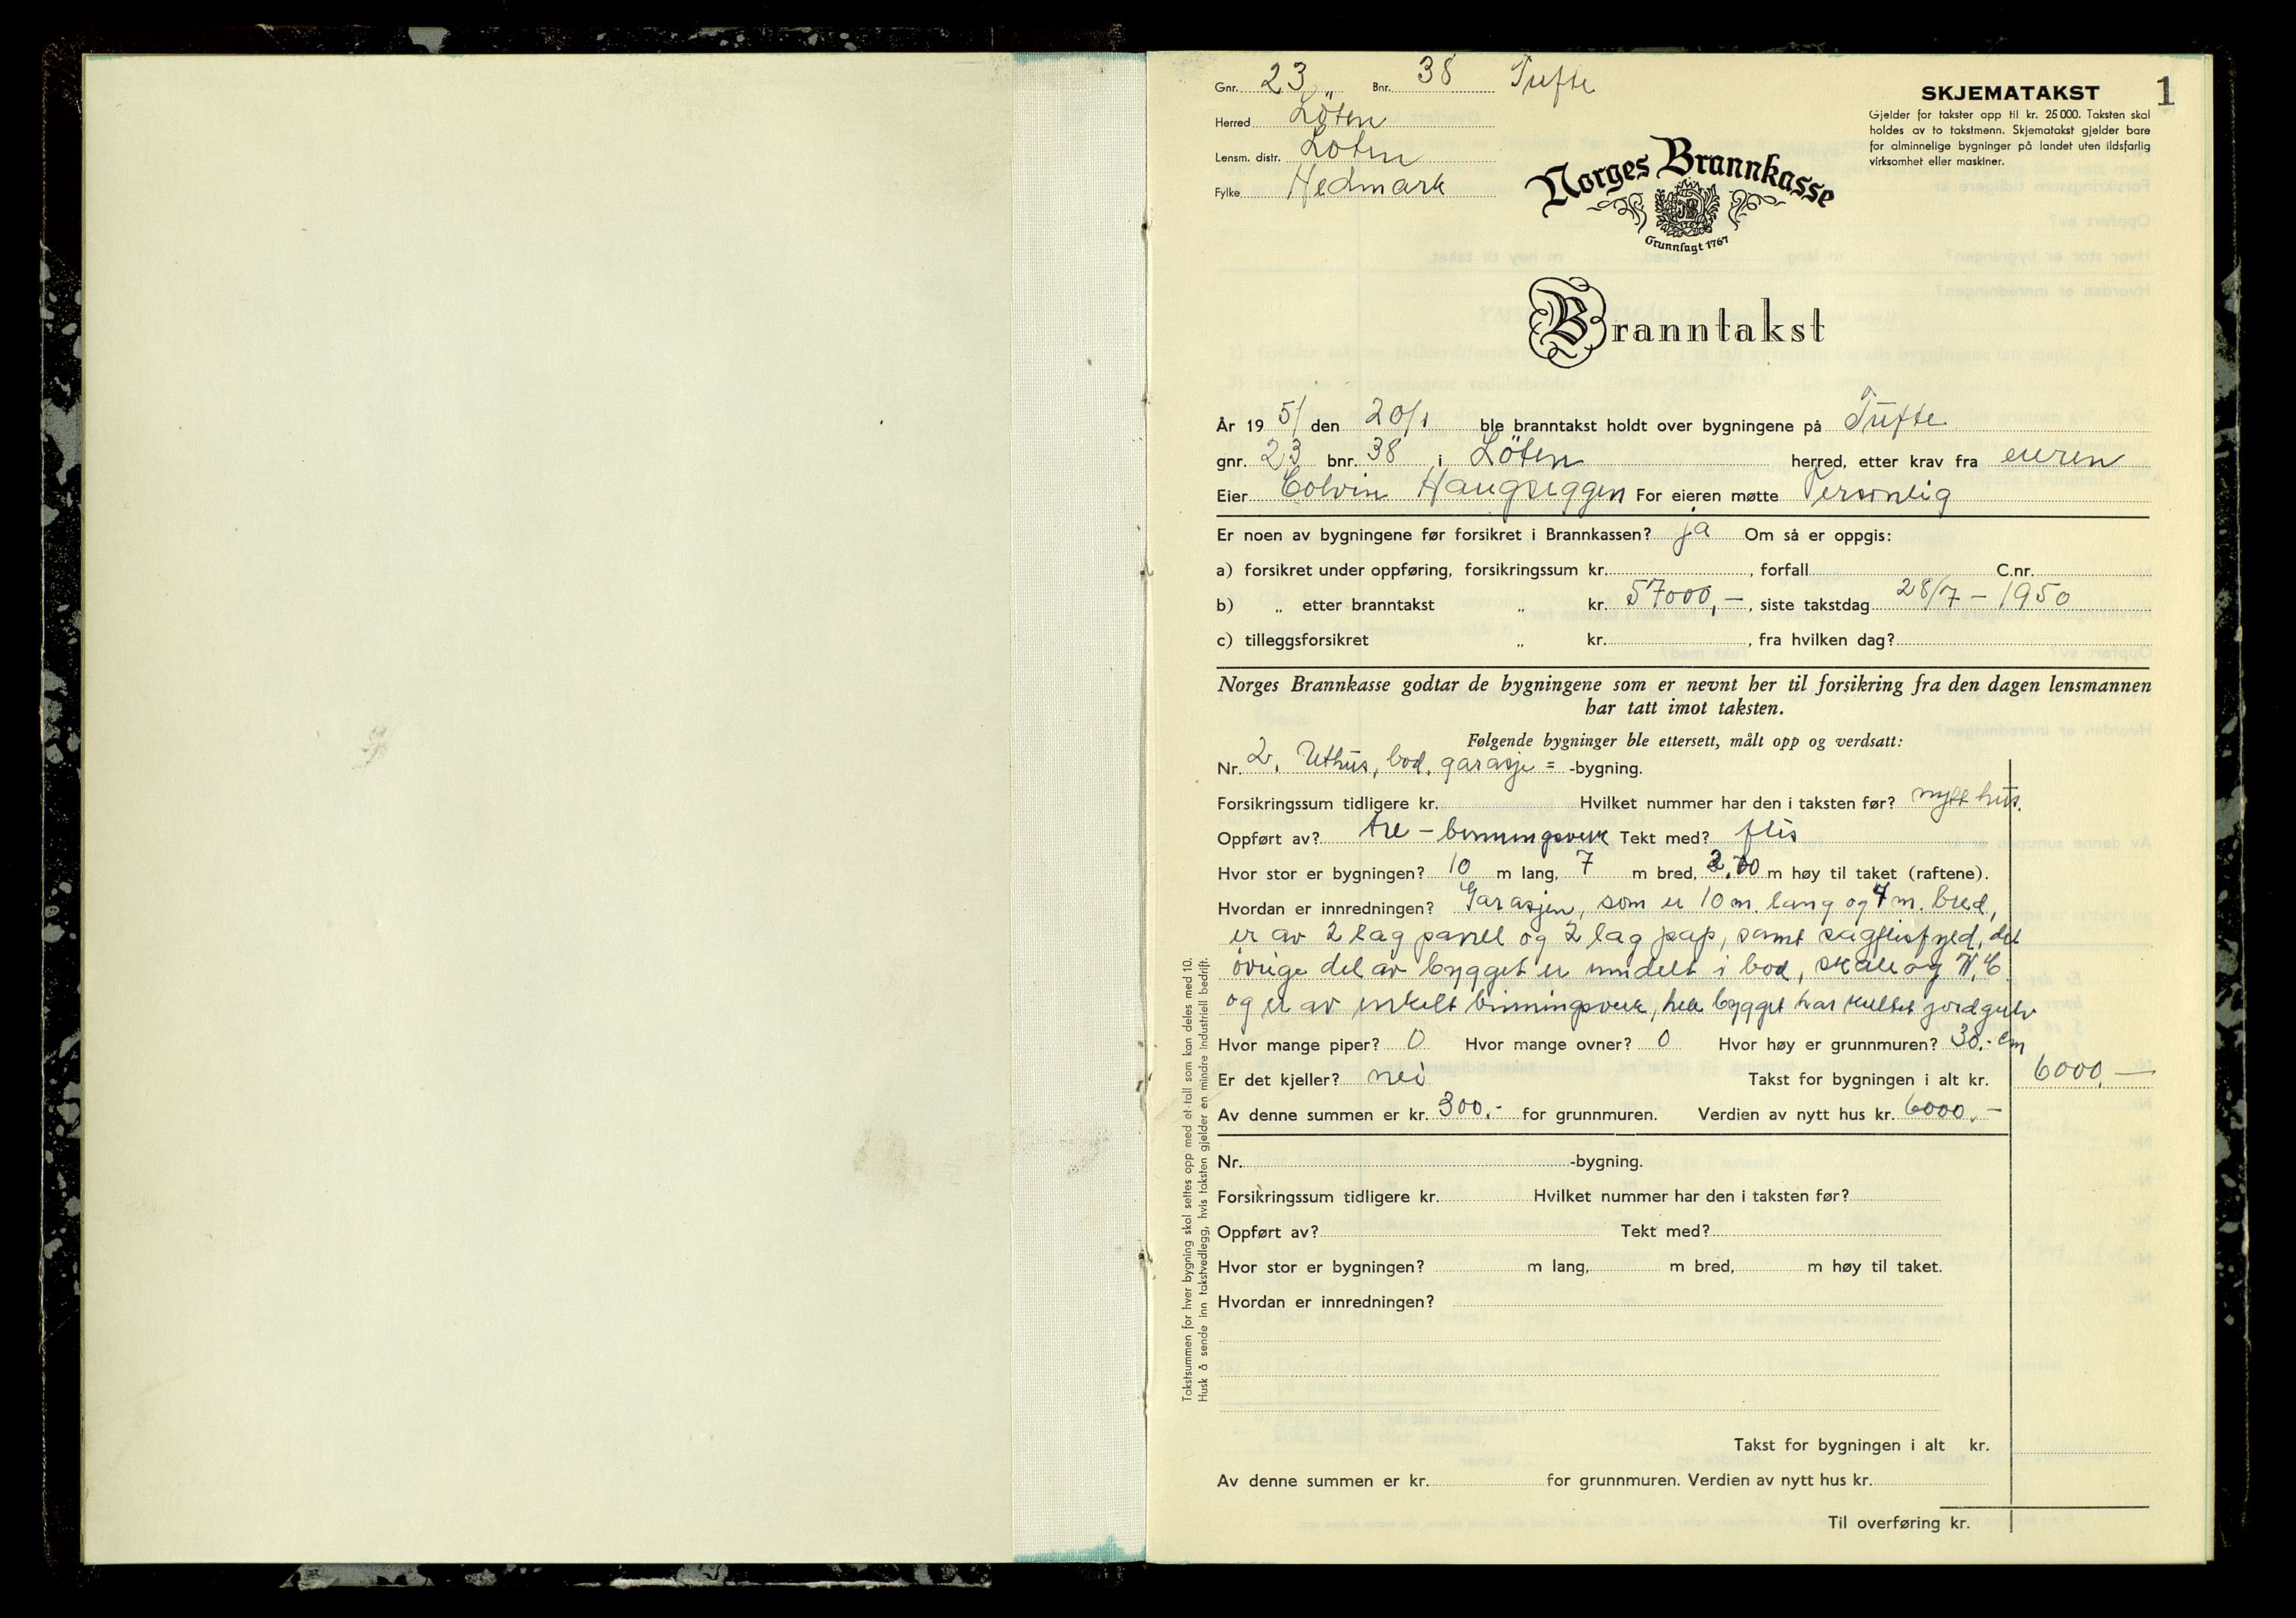 1
Gnr. 23 Bnr. 38 Tufte
Herred Löten
Lensm. distr. Løten
Fylke Hedmark
SKJEMATAKST
Gjelder for takster opp til kr. 25 000. Taksten skal
holdes av to takstmenn. Skjematakst gjelder bare
for alminnelige bygninger på landet uten ildsfarlig
virksomhet eller maskiner.
Norges Brannkasse
Grunnlagt 1767
Branntakst
År 19 51 den 20/1 ble branntakst holdt over bygningene på Tufte
gnr. 23 bnr. 38 i Löten herred, etter krav fra eieren
Eier Colvin Haugseggen For eieren møtte Personlig
Er noen av bygningene før forsikret i Brannkassen? ja Om så er oppgis:
a) forsikret under oppføring, forsikringssum kr. , forfall C.nr.
b) „ etter branntakst „ kr. 57000,- , siste takstdag 28/7 - 1950
c) tilleggsforsikret „ kr. , fra hvilken dag?
Norges Brannkasse godtar de bygningene som er nevnt her til forsikring fra den dagen lensmannen
har tatt imot taksten.
Følgende bygninger ble ettersett, målt opp og verdsatt:
Nr. 2. Uthus, bod, garasje = -bygning.
Forsikringssum tidligere kr. Hvilket nummer har den i taksten før? nytt hus.
Oppført av? tre - binningsverk Tekt med? flis
Hvor stor er bygningen? 10 m lang, 7 m bred, m høy til taket (raftene).
Hvordan er innredningen? Garasjen, som er 10 m. lang og 4 m. bred,
er av 2 lag panel og 2 lag pap, samt sagflisfyld, det
övrige del av bygget er inndelt i bod, skåle og W.C.
og er av enkelt binningsverk, hele bygget har kultet jordgulv
Hvor mange piper? 0 Hvor mange ovner? 0 Hvor høy er grunnmuren? 30.- cm
Er det kjeller? nei Takst for bygningen i alt kr. 6000,—
Av denne summen er kr. 300.- for grunnmuren. Verdien av nytt hus kr. 6000.-
Nr. -bygning.
Forsikringssum tidligere kr. Hvilket nummer har den i taksten før?
Oppført av? Tekt med?
Hvor stor er bygningen? m lang, m bred, m høy til taket.
Hvordan er innredningen?
Takst for bygningen i alt kr.
Av denne summen er kr. for grunnmuren. Verdien av nytt hus kr.
Til overføring kr.
Takstsummen for hver bygning skal settes opp med et tall som kan deles med 10.
Husk å sende inn takstvedlegg, hvis taksten gjelder en mindre industriell bedrift.